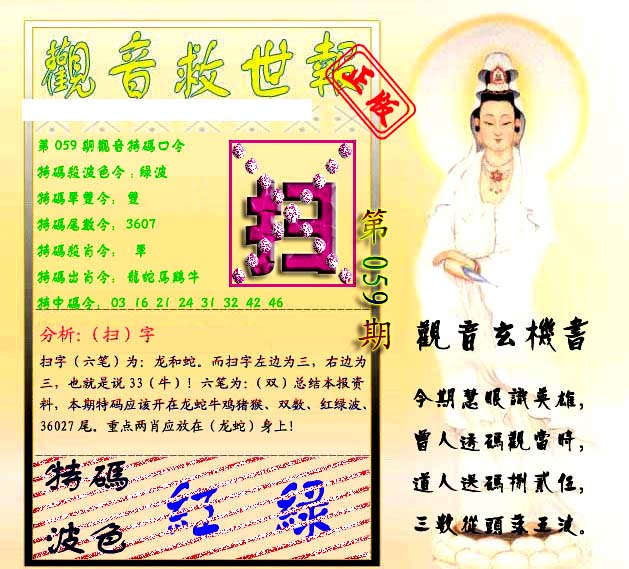 觀音救世報
正版
第 059 期觀音特碼口令
特碼殺波色令：綠波
特碼單雙令： 雙
特碼尾數令： 3607
特碼殺肖令： 單
特碼出肖令： 龍蛇馬鷄牛
特中碼令： 03 16 21 24 31 32 42 46
扫
第 059 期
分析:（扫）字
扫字（六笔）为：龙和蛇。而扫字左边为三，右边为
三，也就是说 33（牛）！六笔为：（双）总结本报资
料，本期特码应该开在龙蛇牛鸡猪猴、双数、红绿波、
36027 尾。重点两肖应放在（龙蛇）身上！
特碼
波色
紅 綠
觀音玄機書
今期慧眼識英雄，
曾人透碼觀當時，
道人送碼捌貳伍，
三數從頭落五波。